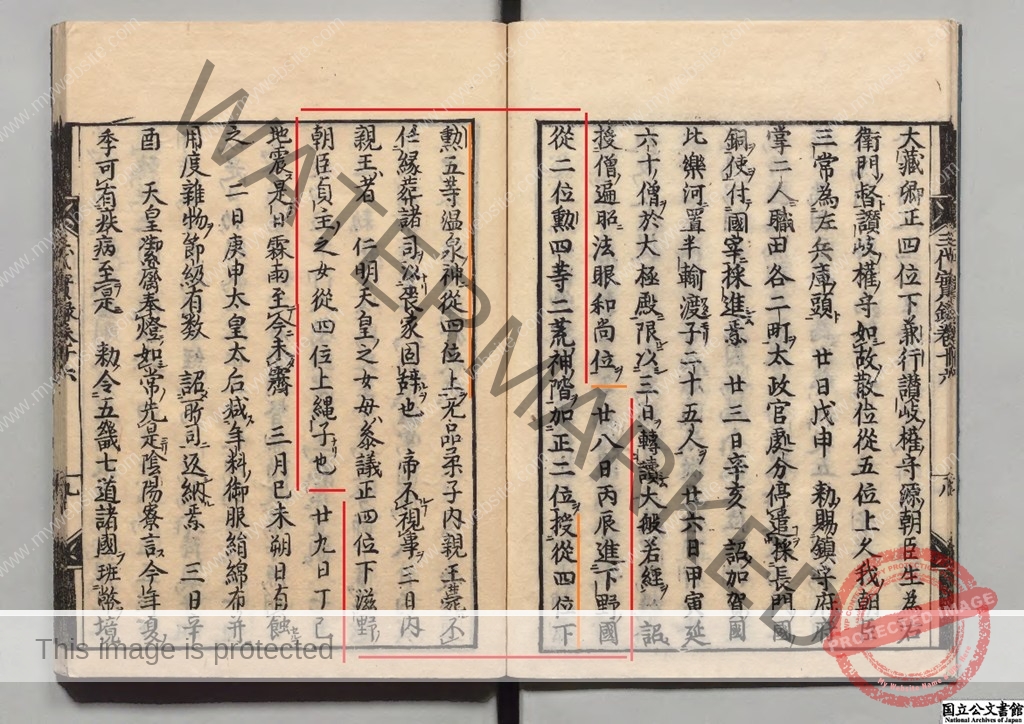 大藏卿正四位下兼行讃岐權守源朝臣生為右
衛門督讃岐權守如故散位從五位上久我朝臣
三常為左兵庫頭　廿日戊申　勅賜鎮守府
掌二人職田各二町太政官處分停遣採長門國
銅使付國宰採進焉　廿三日辛亥　詔加賀國
比樂河置半輸渡子二十五人　廿六日甲寅延
六十僧於大極殿限以三日轉讀大般若經　詔
授僧遍昭法眼和尚位　廿八日丙辰進下野國
從二位勲四等二荒神階加正二位授從四位下
勲五等温泉神從四位上无品柔子内親王薨不
任緣葬諸司以喪家固辞也　帝不視事三日内
親王者　仁明天皇之女母參議正四位下滋野
朝臣貞主之女從四位上縄子也　廿九日丁巳
地震是日霖雨至今未霽　三月己未朔日有蝕
之　二日庚申太皇太后減年料御服絹綿布并
用度雜物節級有数　詔所司返納焉　三日辛
酉　天皇潔齋奉燈如常先是陰陽寮言今年夏
季可有疾病至是　勅令五畿七道諸國班幣境
三代實録卷廿六
八
三代實録卷廿六
九
WATERMARKED
This image is protected
PROTECTED IMAGE
My Website Name
www.mywebsite.com
国立公文書館
National Archives of Japan